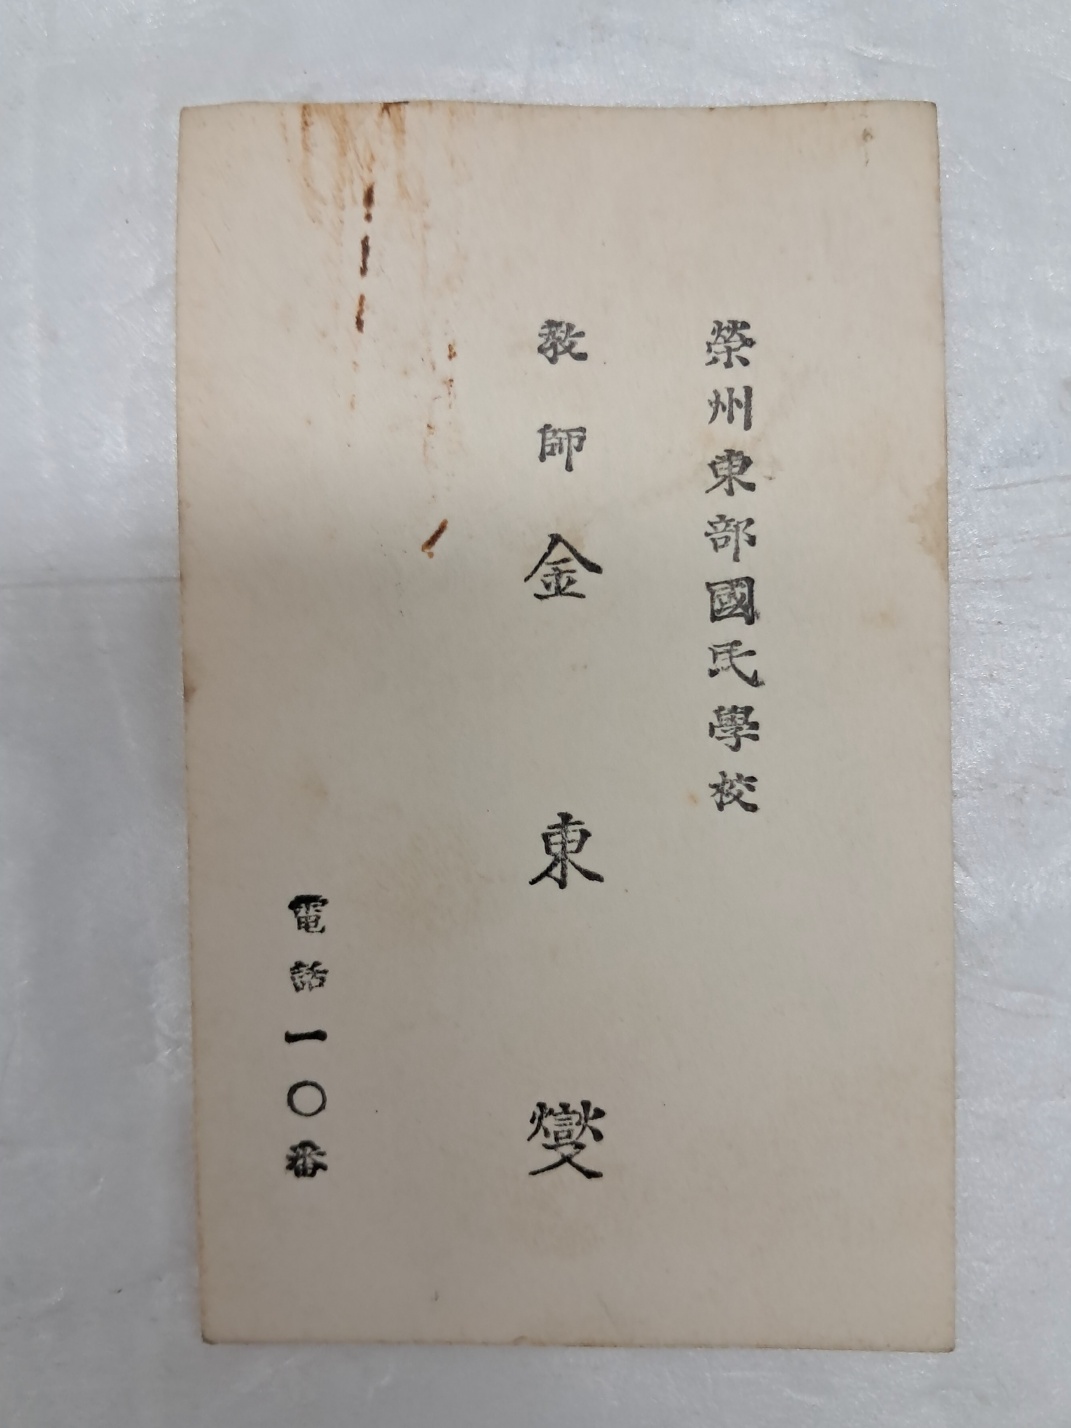 榮州東部國民學校
敎師 金東燮
電話一〇番